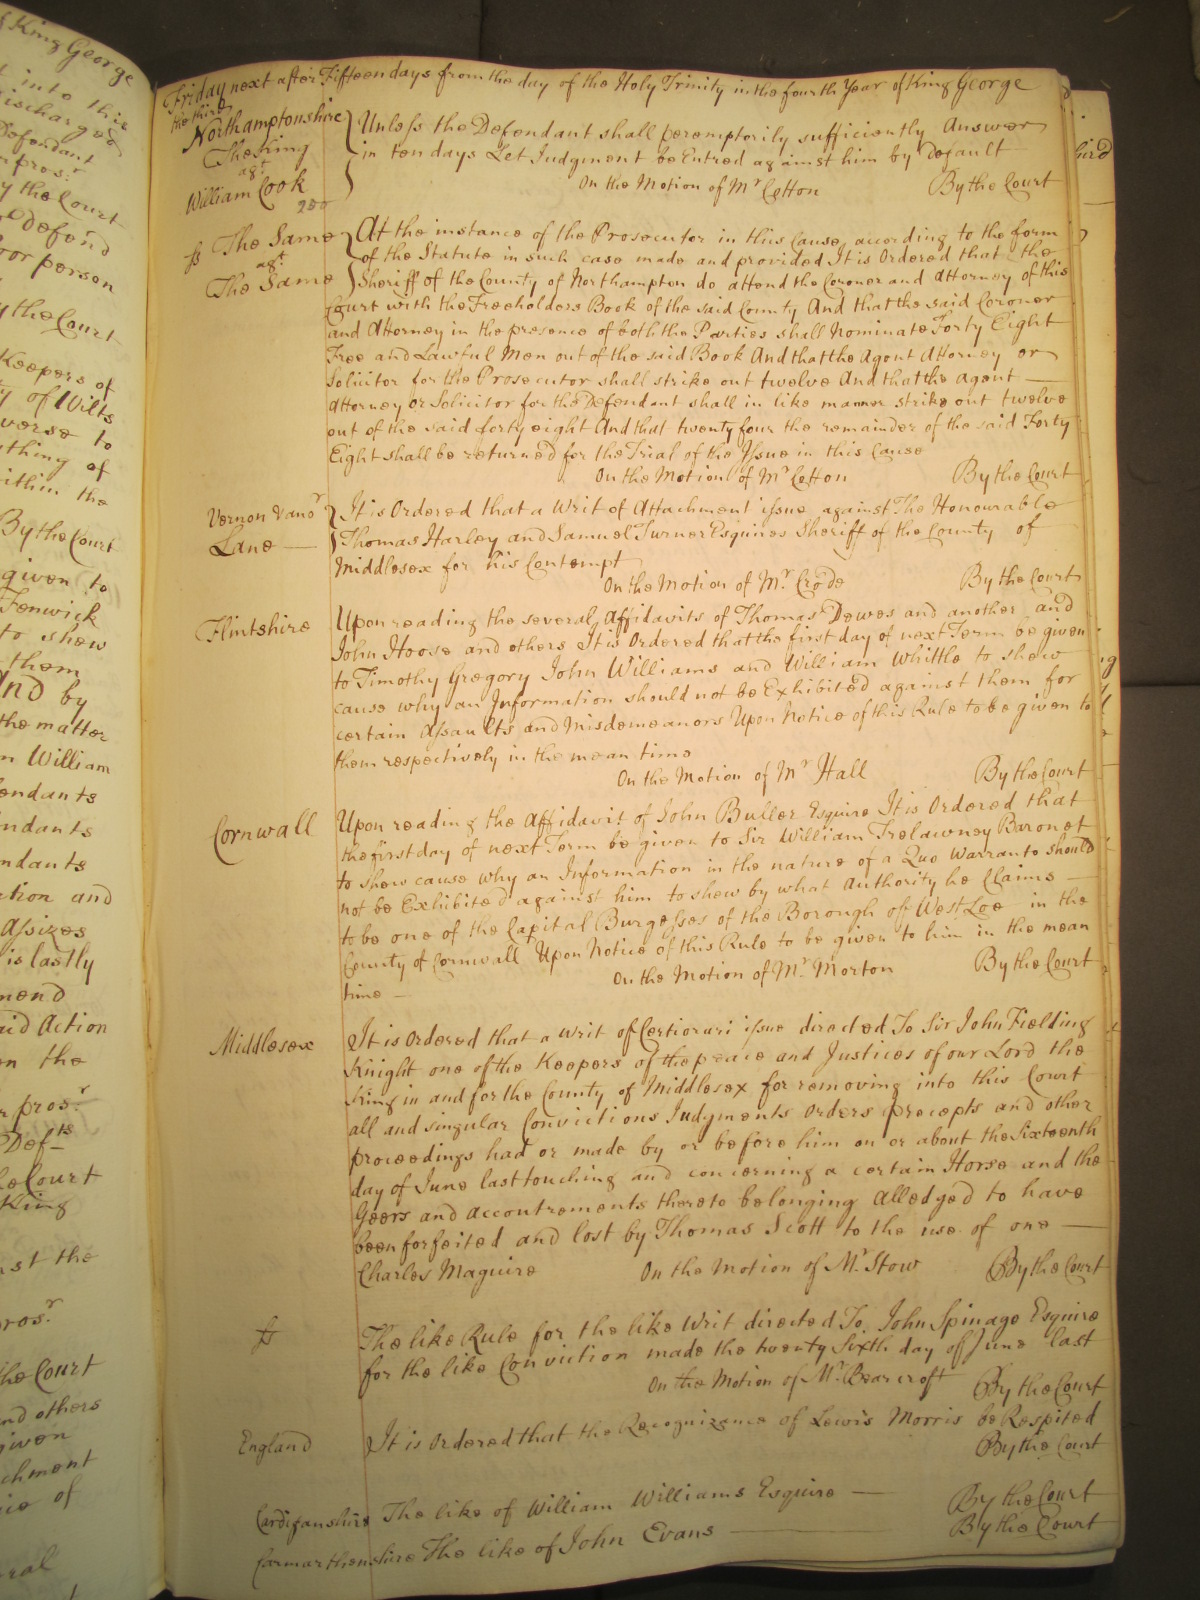 of King George
into this
discharged
Defendant
by the Court
Defend
poor person
by the Court
Keepers of
of Wilts
verse to
thing of
ithin the
By the Court
given to
Fenwick
to shew
them
And by
the matter
William
endants
endants
endants
ction and
Assizes
is lastly
mend
aid Action
on the
pros.r
Defts
he Court
King
st the
pros.r
the Court
and others
given
chment
Friday next after Fifteen days from the day of the Holy Trinity in the fourth Year of King George
the third
Northamptonshire
The King
agt
William Cook
Unless the Defendant shall peremptorily sufficiently Answer
in ten days Let Judgment be Entred against him by Default
On the Motion of Mr Cetton By the Court
ss The Same
agt
The Same
At the instance of the Prosecutor in this Cause according to the form
of the Statute in such case made and provided It is Ordered that the
Sheriff of the County of Northampton do attend the Coroner and Attorney of this
Court with the Freeholders Book of the said County And that the said Coroner
and Attorney in the presence of both the Parties shall Nominate Forty Eight
Free and Lawful Men out of the said Book And that the Agent Attorney or
Solicitor for the Prosecutor shall strike out twelve And that the agent
Attorney or Solicitor for the Defendant shall in like manner strike out twelve
out of the said forty eight And that twenty four the remainder of the said Forty
Eight shall be returned for the Trial of the Issue in this Cause
On the Motion of Mr Cetton By the Court
Vernon
Lane
It is Ordered that a Writ of Attachment issue against The Honourable
Thomas Harley and Samuel Turner Esquires Sheriff of the County of
Middlesex for his Contempt
On the Motion of Mr Crode By the Court
Flintshire
Upon reading the several Affidavits of Thomas Dewes and another and
John Hoose and others It is Ordered that the first day of next Term be given
to Timothy Gregory John Williams and William Whittle to shew
cause why an Information should not be Exhibited against them for
certain Assaults and Misdemeanors Upon Notice of this Rule to be given to
them respectively in the mean time
On the Motion of Mr Hall By the Court
Cornwall
Upon reading the Affidavit of John Buller Esquire It is Ordered that
the first day of next Term be given to Sir William Trelawney Baronet
to shew cause why an Information in the nature of a Quo Warranto should
not be Exhibited against him to shew by what Authority he Claims
to be one of the Capital Burgesses of the Borough of West Loe in the
County of Cornwall Upon Notice of this Rule to be given to him in the mean
time On the Motion of Mr Morton By the Court
Middlesex
It is Ordered that a Writ of Certiorari issue directed To Sir John Fielding
Knight one of the Keepers of the peace and Justices of our Lord the
King in and for the County of Middlesex for removing into this Court
all and singular Convictions Judgments Orders precepts and other
proceedings had or made by or before him on or about the Sixteenth
day of June last touching and concerning a certain Horse and the
Geers and accoutrements thereto belonging alledged to have
been forfeited and lost by Thomas Scott to the use of one
Charles Maguire On the Motion of Mr Stow By the Court
ss
The like Rule for the like Writ directed To John Spinage Esquire
for the like Conviction made the twenty Sixth day of June last
On the Motion of Mr Bearcroft By the Court
England
It is Ordered that the Recognizance of Lewis Morris be Respited
By the Court
Cardiganshire The like of William Williams Esquire By the Court
Carmarthenshire The like of John Evans By the Court